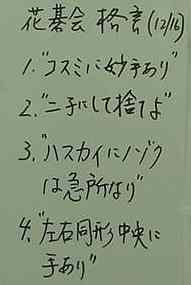 花碁会 格言(12/16)
1."コスミに妙手あり"
2."二子にして捨てよ"
3."ハスカイにノゾク
は急所なり"
4."左右同形中央に
手あり"